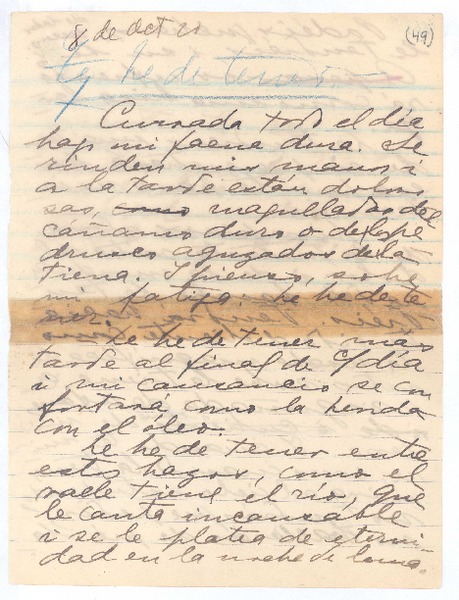 8 de oct 21
(49)
le he de tener
Curvada todo el día
hago mi faena dura. Se
rinden mis manos i
a la tarde están doloro
sas, magulladas del
cáñamo duro o de los pe
druscos aguzados de la
tierra. I pienso, sobre
mi fatiga: le he de te
ner.
Le he de tener más
tarde al final de el día
i mi cansancio se con
fortará como la herida
con el óleo.
Le he de tener entre
estos brazos, como el
valle tiene el río, que
le canta incansable
i se le platea de eterni-
dad en la noche de luna.